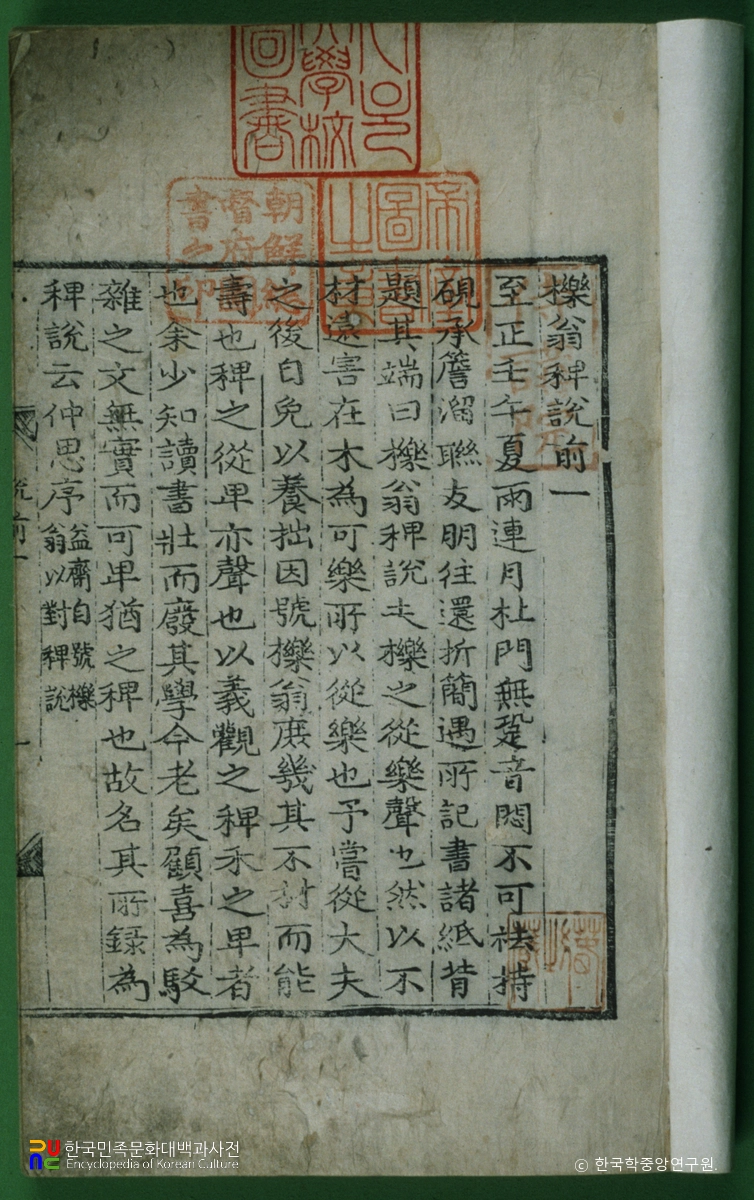 櫟翁稗說前一
至正壬午夏雨連月杜門無跫音悶不可袪持
硯承簷溜聯友朋往還折簡遇所記書諸紙背
題其端曰櫟翁稗說夫櫟之從樂聲也然以不
材遠害在木為可樂所以從樂也予嘗從大夫
之後自免以養拙因號櫟翁庶幾其不材而能
壽也稗之從卑亦聲也以義觀之稗禾之卑者
也余少知讀書壯而廢其學今老矣顧喜為駁
雜之文無實而可卑猶之稗也故名其所錄為
稗說云仲思序
益齋自號櫟
翁以對稗說
說前一
一
學校
圖書
朝鮮總
督府圖
書之印
한국민족문화대백과사전
Encyclopedia of Korean Culture
© 한국학중앙연구원.